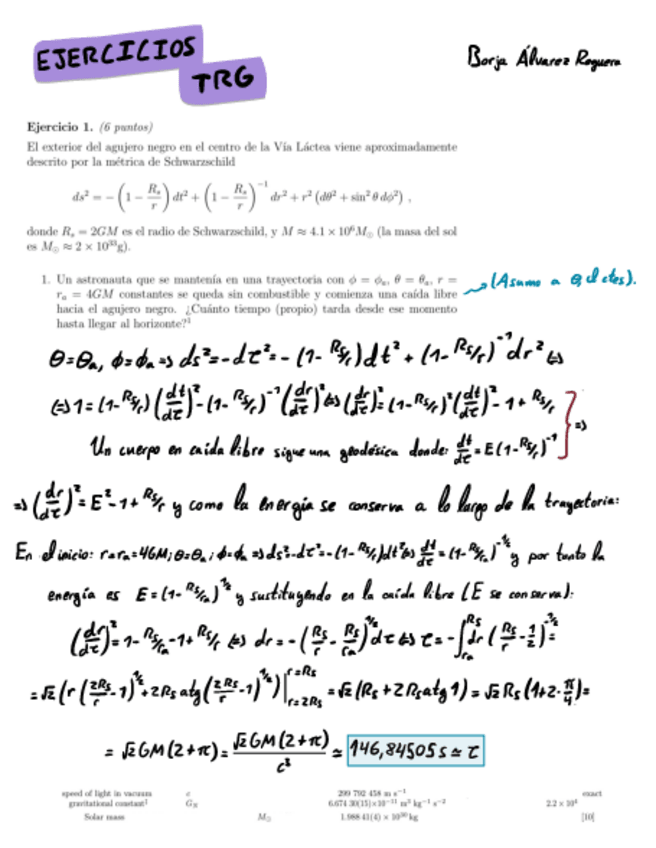 EJERCICIOS
TRG
Borja Álvarez Reguera
Ejercicio 1. (6 puntos)
El exterior del agujero negro en el centro de la Vía Láctea viene aproximadamente
descrito por la métrica de Schwarzschild
ds² = −(1 − R_s/r) dt² + (1 − R_s/r)⁻¹ dr² + r² (dθ² + sin² θ dφ²) ,
donde R_s = 2GM es el radio de Schwarzschild, y M ≈ 4.1 × 10⁶M⊙ (la masa del sol
es M⊙ ≈ 2 × 10³³g).
1. Un astronauta que se mantenía en una trayectoria con φ = φₐ, θ = θₐ, r =
rₐ = 4GM constantes se queda sin combustible y comienza una caída libre
hacia el agujero negro. ¿Cuánto tiempo (propio) tarda desde ese momento
hasta llegar al horizonte?¹
(Asumo a θ, φ ctes).
θ=θₐ, φ=φₐ ⇒ ds²=-dτ²=-(1-Rs/r)dt²+(1-Rs/r)⁻¹dr² ⇔
⇔ 1=(1-Rs/r)(dt/dτ)²-(1-Rs/r)⁻¹(dr/dτ)² ⇔ (dr/dτ)²=(1-Rs/r)²(dt/dτ)²-1+Rs/r
Un cuerpo en caída libre sigue una geodésica donde: dt/dτ=E(1-Rs/r)⁻¹ } ⇒
⇒ (dr/dτ)²=E²-1+Rs/r y como la energía se conserva a lo largo de la trayectoria:
En el inicio: r=rₐ=4GM; θ=θₐ; φ=φₐ ⇒ ds²=-dτ²=-(1-Rs/rₐ)dt² ⇔ dt/dτ=(1-Rs/rₐ)^-1/2 y por tanto la
energía es E=(1-Rs/rₐ)^1/2 y sustituyendo en la caída libre (E se conserva):
(dr/dτ)²=1-Rs/rₐ-1+Rs/r ⇔ dr=-(Rs/r-Rs/rₐ)^1/2 dτ ⇔ τ=-∫_rₐ^Rs dr(Rs/r-1/2)^-1/2=
=√2(r(2Rs/r-1)^1/2+2Rs atg(2Rs/r-1)^1/2)|_r=2Rs^r=Rs=√2(Rs+2Rs atg 1)=√2Rs(1+2·π/4)=
=√2GM(2+π)=√2GM(2+π)/c³≃146,84505s≃τ
speed of light in vacuum c 299 792 458 m s⁻¹ exact
gravitational constant¹ G_N 6.674 30(15)×10⁻¹¹ m³ kg⁻¹ s⁻² 2.2 × 10⁴
Solar mass M⊙ 1.988 41(4) × 10³⁰ kg [10]